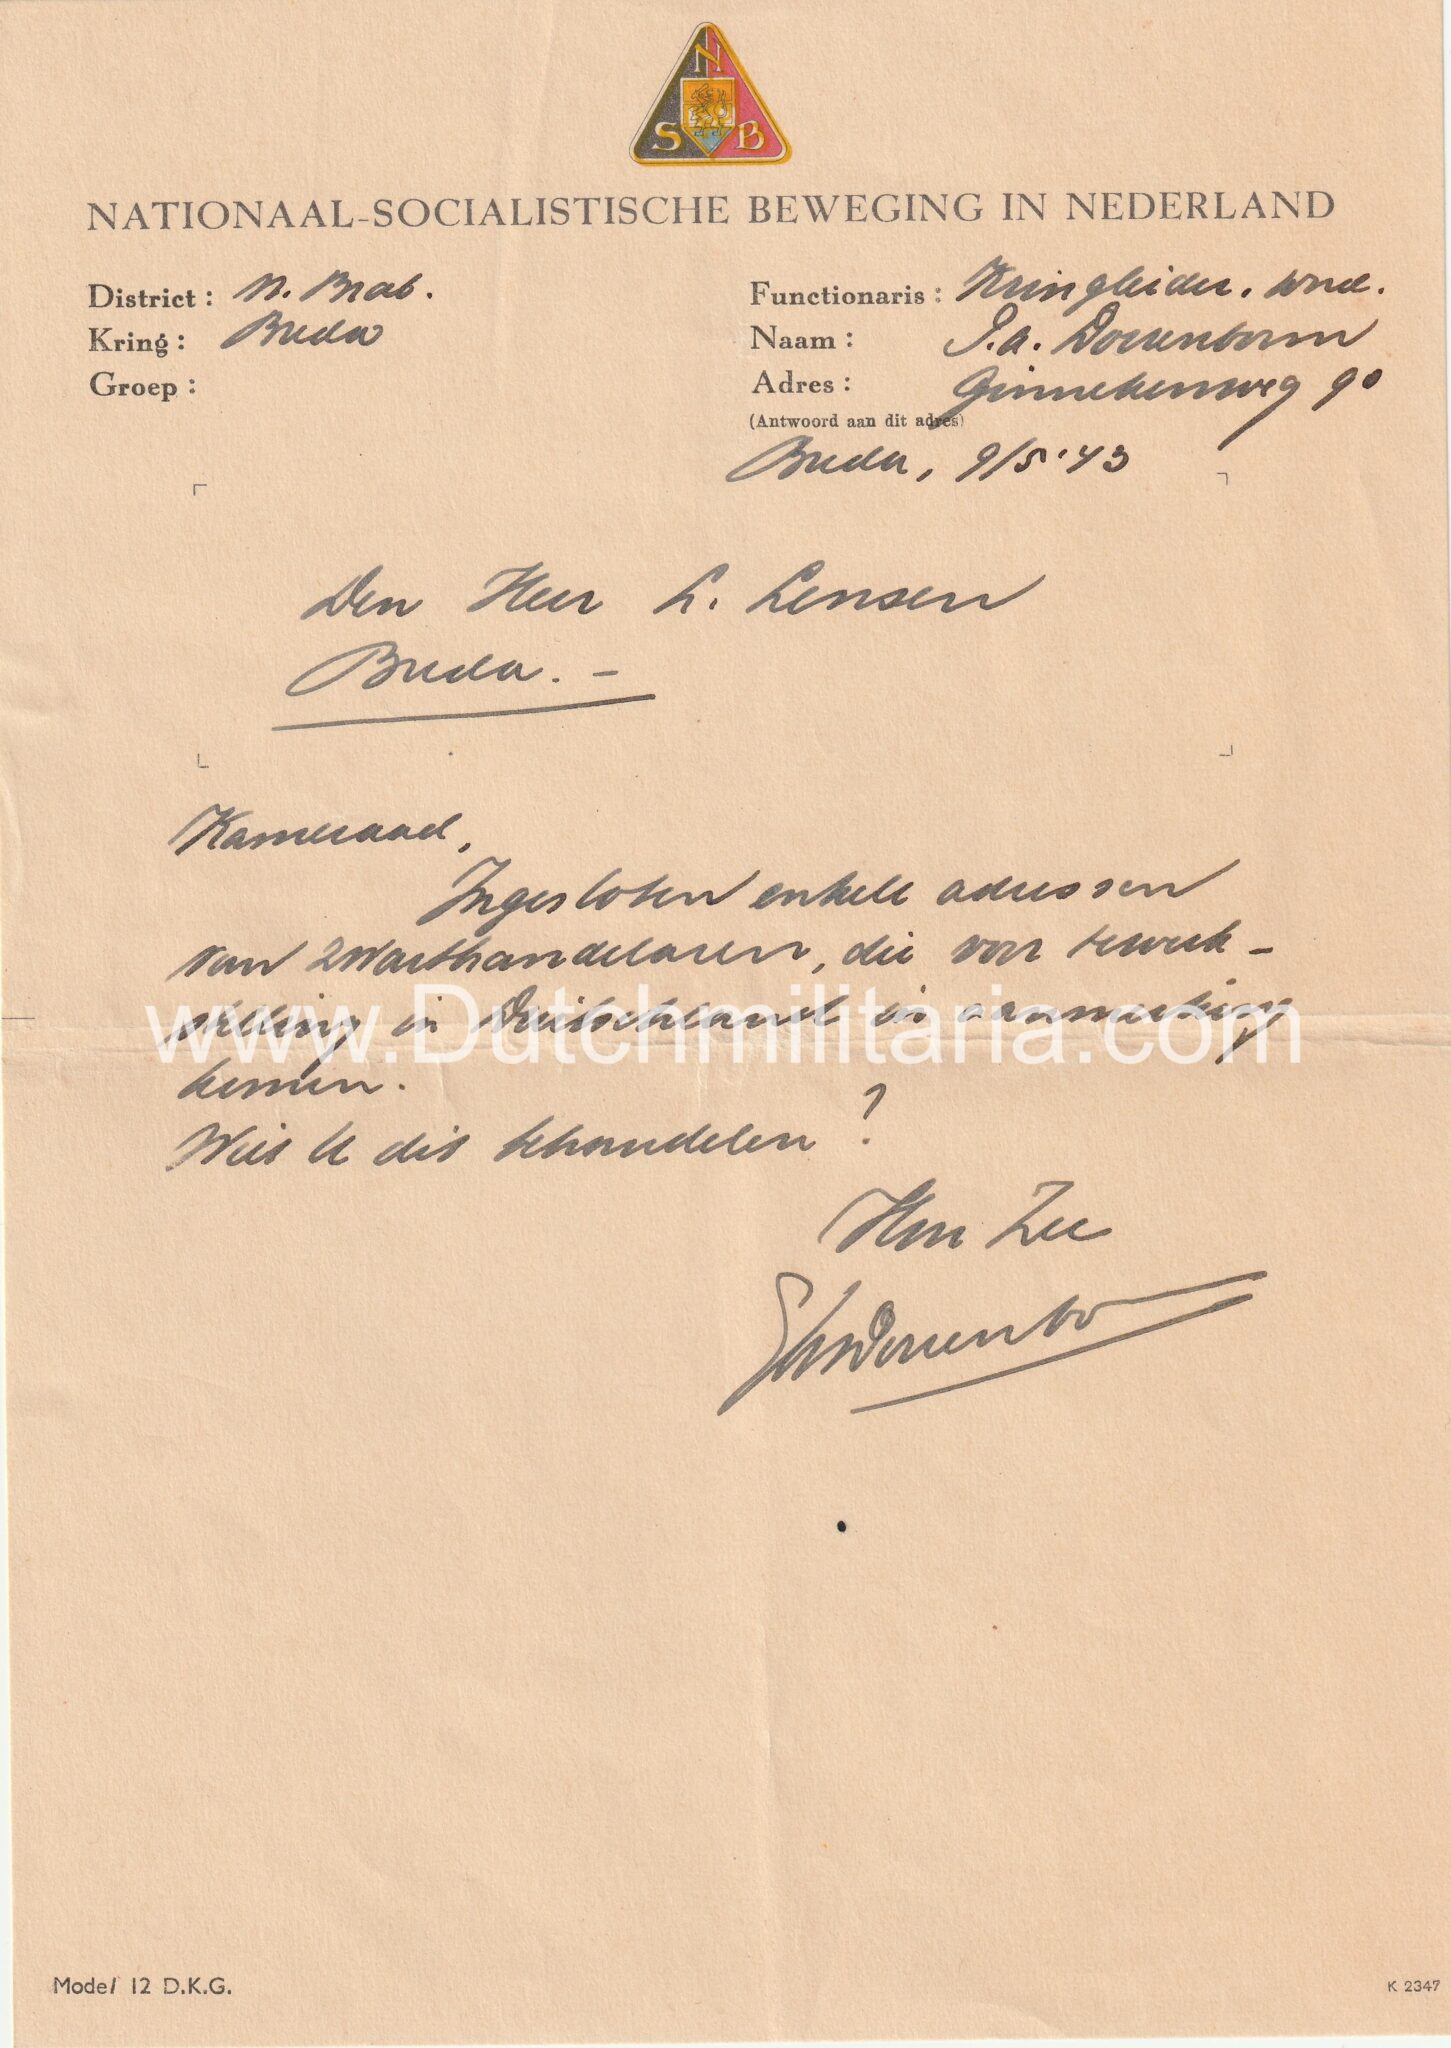 N
S B
NATIONAAL-SOCIALISTISCHE BEWEGING IN NEDERLAND
District: N. Brab.
Kring: Breda
Groep:
Functionaris: Kringleider. wnd.
Naam:
Adres: Ginnekenweg 90
(Antwoord aan dit adres)
Breda, 9/5 '43
Den Heer L. Lensen
Breda. -
Kameraad,
Ingesloten enkele adressen
van zwarthandelaren, die voor tewerk-
stelling in Duitschland in aanmerking
komen.
Wilt U dit behandelen?
Hou Zee
www.Dutchmilitaria.com
Model 12 D.K.G.
K 2347